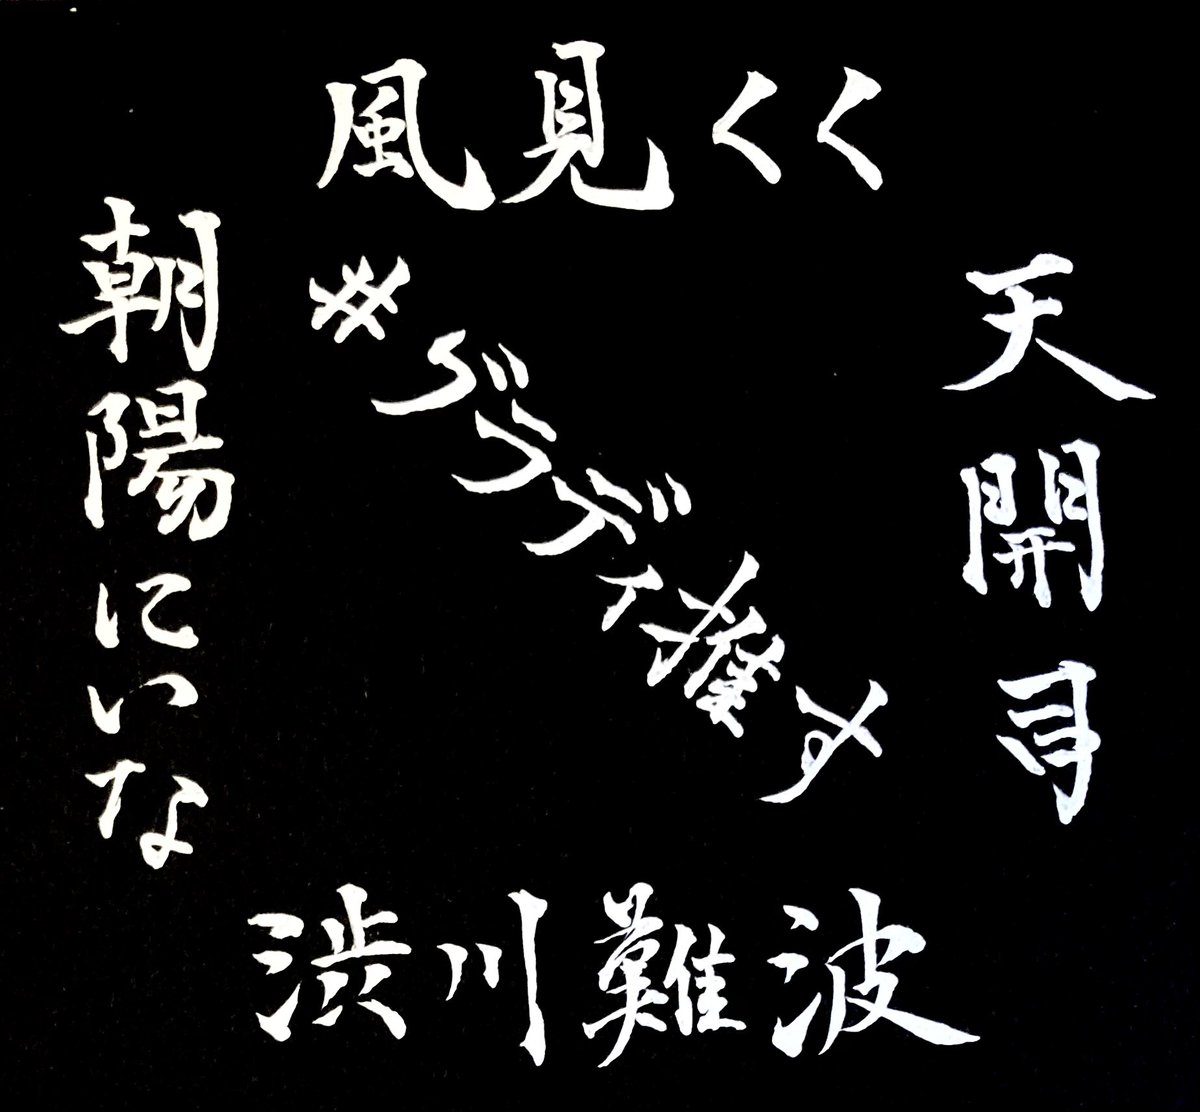 風見くく
朝陽にいな
#グラディ推す
天開司
渋川難波